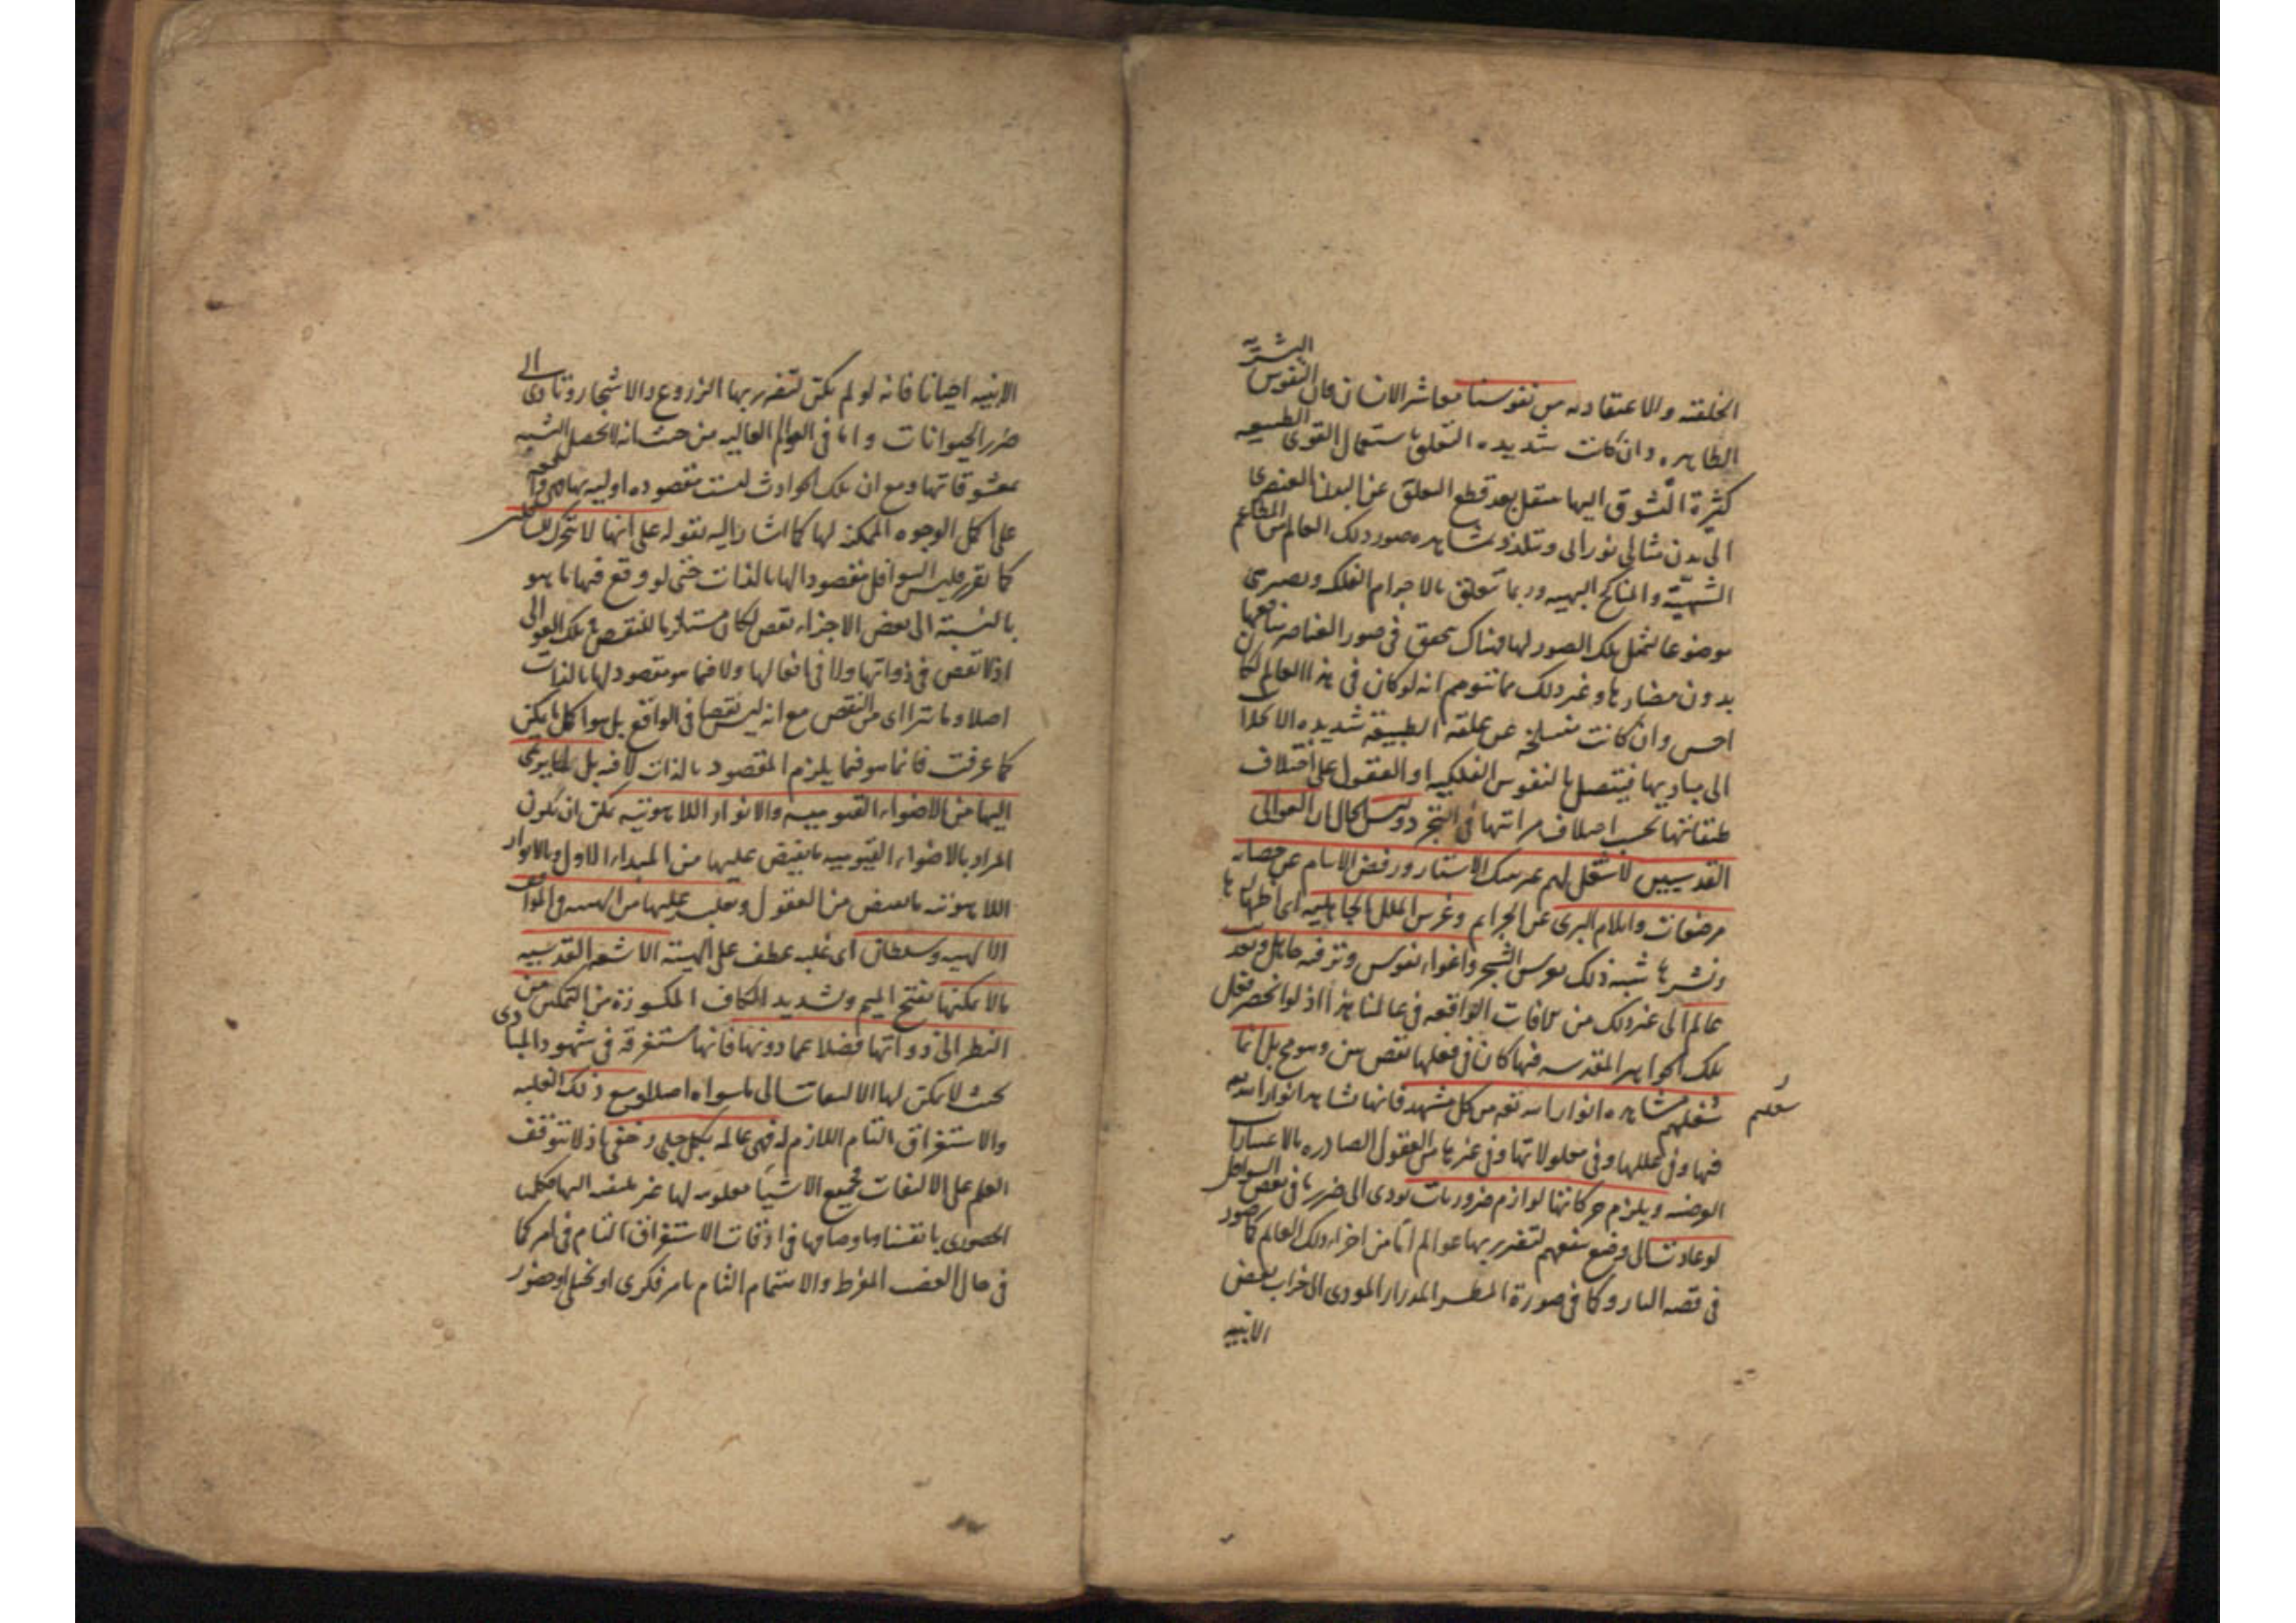 الخلقته والاعتقاديه من نفوسنا معاشر الانسان فان النفوس البشريه
الطاهره وان كانت شديده التعلق باستعمال القوى الطبيعيه
كثيرة الشوق اليها ستقل بعد قطع التعلق عن البدن العنصرى
الى بدن مثالى نورانى وتتلذذ بمشاهده صور ذلك العالم من المطاعم
الشهيّة والمناكح البهيه وربما تتعلق بالاجرام الفلكيه ويصير هى
موضوعا لتمثل تلك الصور لها وهناك تتحقق فى صور العناصر منافعها
بدون مضارها وغير ذلك مما نتوهم انه لو كان فى هذا العالم لكان
احسن وان كانت منسلخه عن علقه الطبيعة شديده الانجذاب
الى مباديها فيتصل بالنفوس الفلكيه او العقول على اختلاف
طبقاتها بحسب اختلاف مراتبها فى التجرد وليس الحال ان العوالى
القدسيين لا شغل لهم غير هتك الاستار ورفض الايتام عن حضانه
مرضعات وايلام البرى عن الجرايم وغرس الملل الجاهليه اى اظهارها
ونشرها شبه ذلك بغرس الشجر واغواء نفوس وترفيه جاهل وتعذيب
عالم الى غير ذلك من الافات الواقعه فى عالمنا هذا اذ لو انحصر فعل
تلك الجواهر المقدسه فيها كان فى فعلها نقص بين وسوء بل انما
شغلهم مشاهده انوار الله تعم من كل مشهد فانها تشاهد انوار الله
شغلهم
فيها وفى عللها وفى معلولاتها وفى غيرها من العقول الصادره بالاعتبارات
العرضيه ويلزم حركاتها لوازم ضروريات يودى الى ضررها فى بعض السوافل
لو عادت الى وضع ينفعهم لتضرر بها عوالم اما من اجزاء ذلك العالم كما صور
فى قصه النار وكما فى صورة المطر المدرار المودى الى خراب بعض
الابنيه
الابنيه احيانا فانه لو لم يكن لتضرر بها الزروع والاشجار وتادى الى
ضرر الحيوانات واما فى العوالم العاليه من حيث انه لا يحصل التشبه
بمعشوقاتها ومع ان تلك الحوادث ليست مقصوده اوليه بها فهى واقعه
على اكمل الوجوه الممكنه لها كما اشار اليه بقوله على انها لا تتحرك للسافل
كما تقرر فليس السوافل مقصودا لها بالذات حتى لو وقع فيها ما هو
بالنسبة الى بعض الاجزاء نقص لكان مستلزما للنقص فى تلك العوالى
اذ لا نقص فى ذواتها ولا فى افعالها ولا فيما هو مقصود لها بالذات
اصلا وما يتراأى من النقص مع انه ليس نقصا فى الواقع بل هو اكمل ما يمكن
كما عرفت فانما هو فيما يلزم المقصود بالذات لا فيه بل لما يرى
اليها من الاضواء القيوميه والانوار اللاهوتيه يمكن ان يكون
المراد بالاضواء القيوميه ما يفيض عليها من المبداء الاول وبالانوار
اللاهوتيه ما يفيض من العقول ويغلب عليها من الهيبه والمواقف
الالهيه وسلطان اى غلبه عطف على الهيبة الاشعه القدسيه
ما لا يمكنها بفتح الميم وتشديد الكاف المكسورة من التمكين من
النظر الى ذواتها فضلا عما دونها فانها مستغرقة فى شهود المبادى
بحيث لا يمكن لها الالتفات الى ما سواه اصلا ومع ذلك الغلبه
والاستغراق التام اللازم له فهى عالمه بكل جلى وخفى اذ لا تتوقف
العلم على الالتفات فجميع الاشيا معلومه لها غير ملتفته اليها كعلمنا
الحضورى بانفسنا وباوصافها فى اوقات الاستغراق التام فى امر كما
فى حال الغضب المفرط والاهتمام التام بامر فكرى او تخيلى او حضور